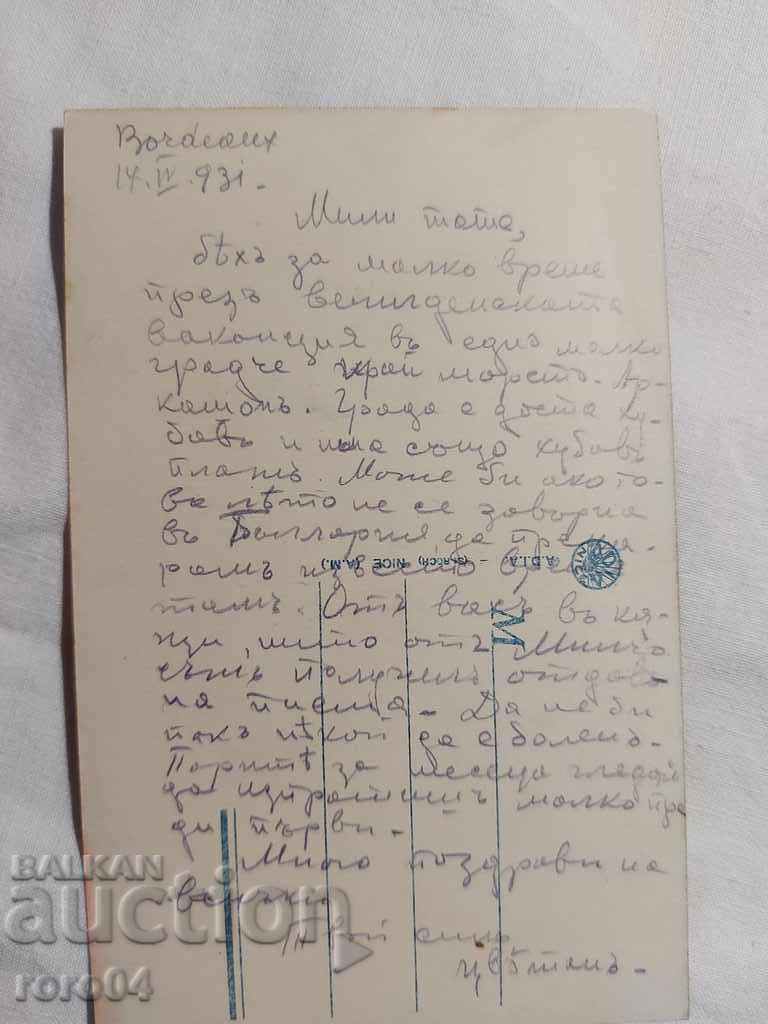 Bordeaux
14.IV.931.
Мили тата,
бѣхъ за малко време
презъ великденската
ваканция въ едно малко
градче край морето - Ар-
кашонъ. Града е доста ху-
бавъ и има също хубавъ
плажъ. Може би ако то-
ва лѣто не се завърна
въ България да прека-
рамъ известно време
тамъ. Отъ васъ въ кѫ-
щи, нито отъ
съмъ получилъ отдав-
на писма. Да не би
пакъ нѣкой да е боленъ.
Паритѣ за месеца гледай
да изпратишъ малко пре-
ди първи.
Много поздрави на
всички
Твой синъ
Цвѣтанъ.
A.D.I.A. - (6, ACCH) NICE (A.M.)
NICE
M
BALKAN
auction
roro04